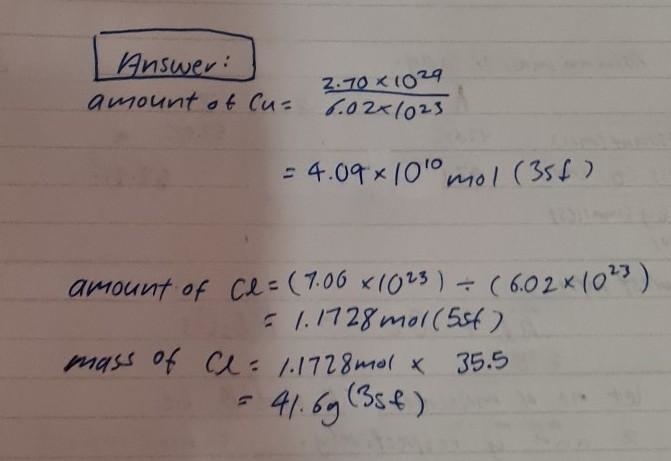 Answer:
amount of Cu = 2.70 × 10²⁹ / 6.02 × 10²³
= 4.09 × 10¹⁰ mol (3sf)
amount of Cl = (7.06 × 10²³) ÷ (6.02 × 10²³)
= 1.1728 mol (5sf)
mass of Cl = 1.1728 mol × 35.5
= 41.6g (3sf)